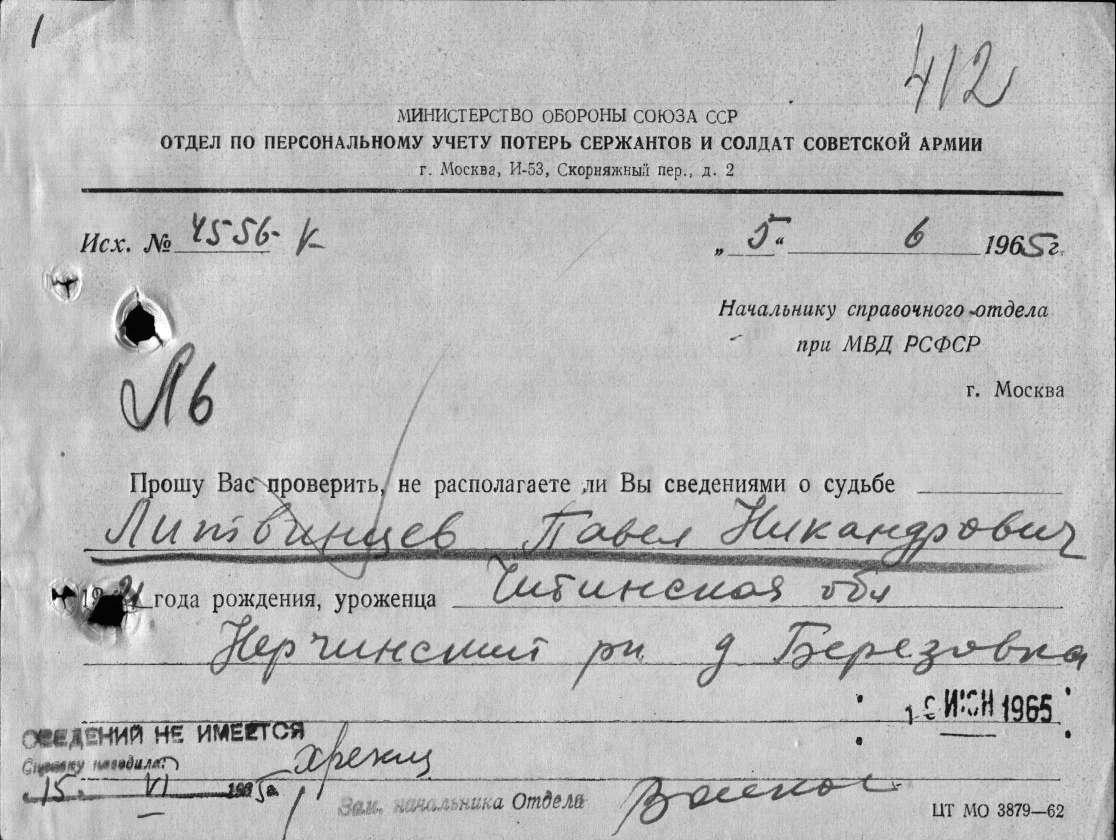 412
МИНИСТЕРСТВО ОБОРОНЫ СОЮЗА ССР
ОТДЕЛ ПО ПЕРСОНАЛЬНОМУ УЧЕТУ ПОТЕРЬ СЕРЖАНТОВ И СОЛДАТ СОВЕТСКОЙ АРМИИ
г. Москва, И-53, Скорняжный пер., д. 2
Исх. № 4556- „ 5 “ 6 1965 г.
Начальнику справочного отдела
при МВД РСФСР
г. Москва
Прошу Вас проверить, не располагаете ли Вы сведениями о судьбе
Литвинцев Павел Никандрович
года рождения, уроженца Читинская обл
Нерчинский рн д Березовка
ИЮН 1965
СВЕДЕНИЙ НЕ ИМЕЕТСЯ
Справку наводила:
15 VI 1965 г.
Зам. начальника Отдела
ЦТ МО 3879—62